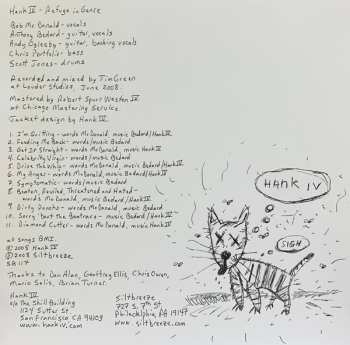 Hank IV - Refuge in Genre
Bob McDonald - vocals
Anthony Bedard - guitar, vocals
Andy Oglesby - guitar, backing vocals
Chris Portfolio - bass
Scott Jones - drums
Recorded and mixed by Tim Green
at Louder Studios, June 2008.
Mastered by Robert Spurr Weston IV
at Chicago Mastering Service.
Jacket design by Hank IV.
1. I'm Gifting - words McDonald, music Bedard/Hank IV
2. Feeding Me Back - words/music Bedard
3. Get It Straight - words McDonald, music Hank IV
4. Celebrity Virgin - words/music Bedard
5. Drive the Whip - words McDonald, music Bedard/Hank IV
6. My Anger - words McDonald, music Bedard/Hank IV
7. Symptomatic - words/music Bedard
8. Beaten, Fouled, Threatened and Hated -
words McDonald, music Bedard/Hank IV
9. Dirty Poncho - words McDonald, music Bedard
10. Sorry 'bout the
words McDonald, music Bedard/Hank IV
11. Diamond Cutter - words McDonald, music Hank IV
all songs BMI.
℗ 2008 Hank IV
© 2008 Siltbreeze
SB 117
Thanks to Dan Alan, Geoffrey Ellis, Chris Owen,
Mario Solis, Brian Turner.
Hank IV
c/o The Skill Building
1124 Sutter St
San Francisco CA 94109
www.hankiv.com
Siltbreeze
727 S. 7th St
Philadelphia, PA 19147
www.siltbreeze.com
HANK IV
SIGH